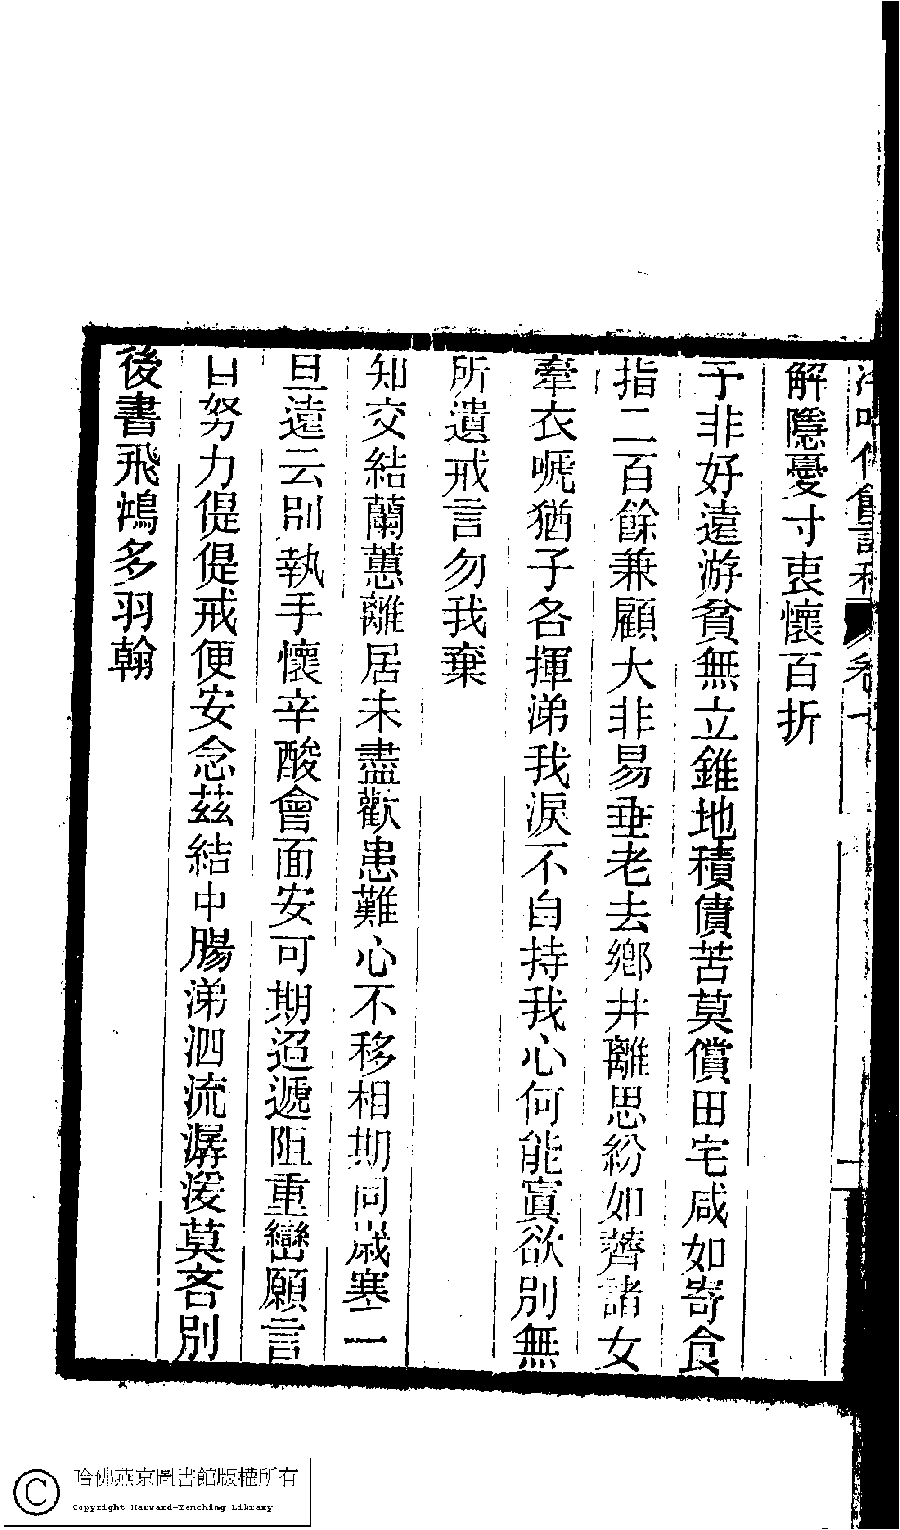 解隱憂寸衷懷百折
予非好遠游貧無立錐地積債苦莫償田宅咸如寄食
指二百餘兼顧大非易垂老去鄉井離思紛如薺諸女
牽衣嗁猶子各揮涕我淚不自持我心何能寘欲別無
所遺戒言勿我棄
知交結蘭蕙離居未盡歡患難心不移相期同歲寒一
旦遠云別執手懷辛酸會面安可期迢遞阻重巒願言
日努力偍偍戒便安念茲結中腸涕泗流潺湲莫吝別
後書飛鴻多羽翰
哈佛燕京圖書館版權所有
Copyright Harvard-Yenching Library